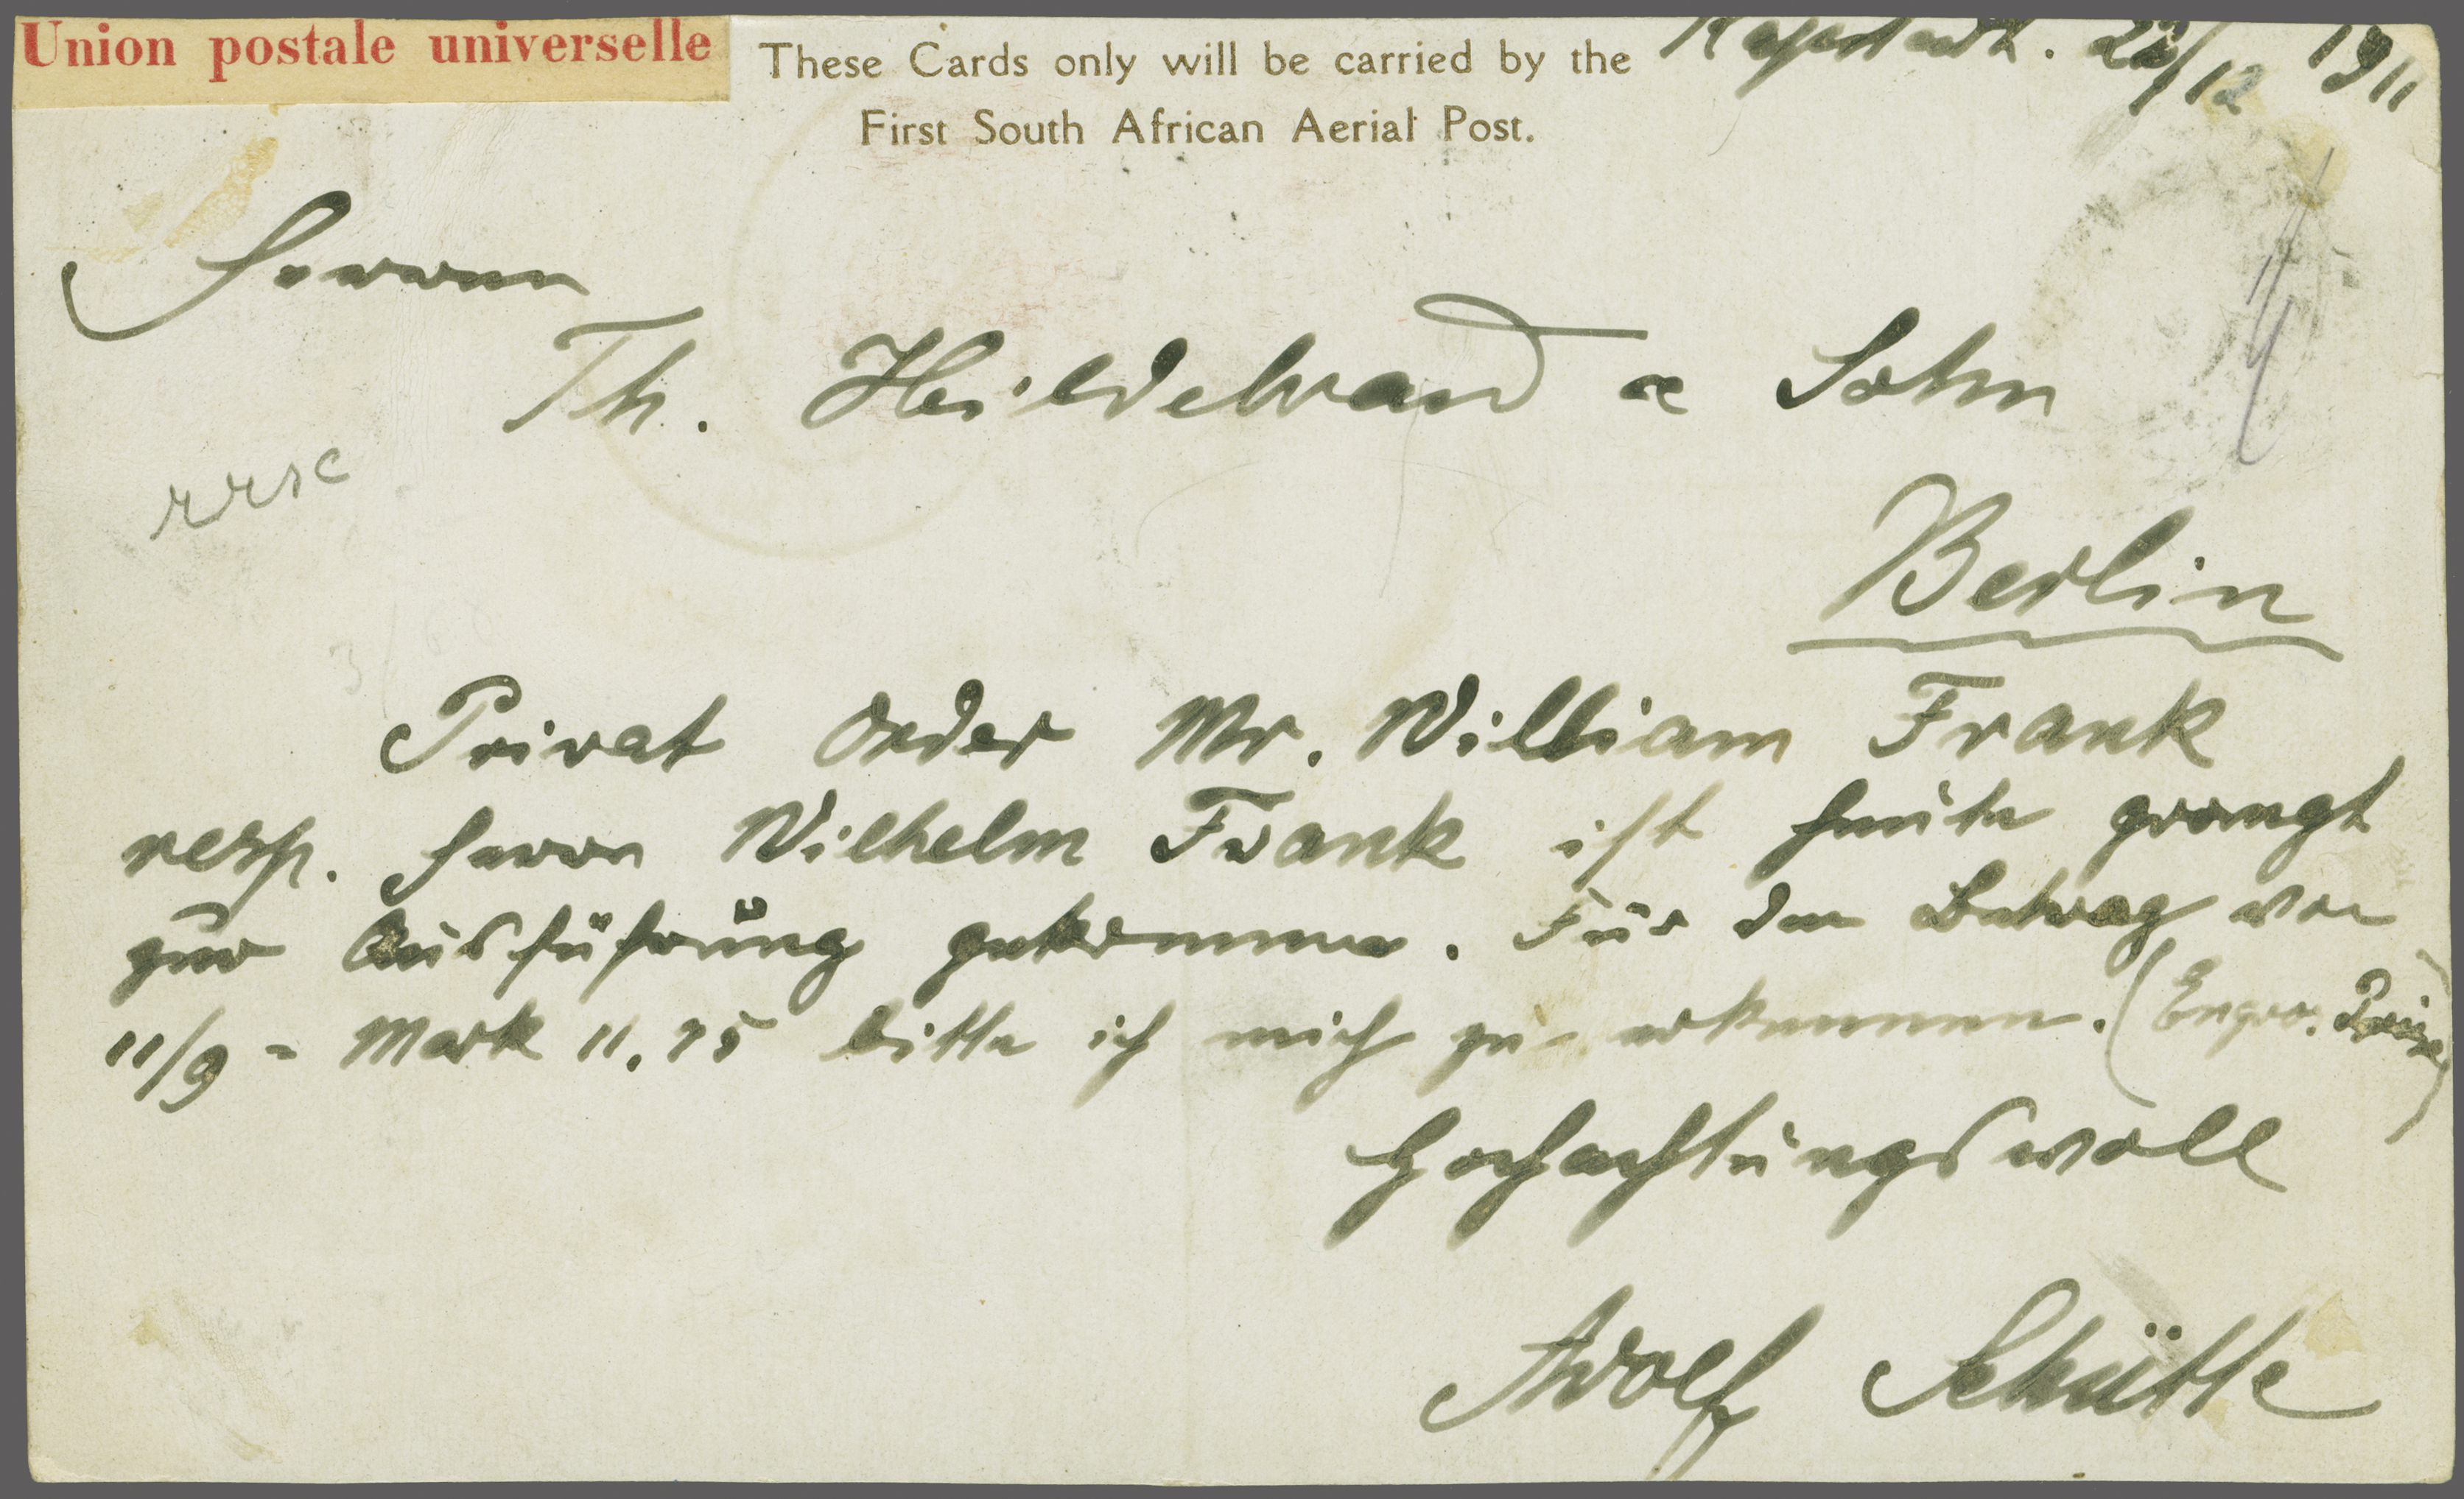 Union postale universelle
These Cards only will be carried by the
First South African Aerial Post.
Kapstadt. 28/12 1911
Herren
Th. Heildebrand & Sohn
Berlin
Privat Order Mr. William Frank
resp. Herrn Wilhelm Frank ist heute prompt
zur Ausführung gekommen. Für den Betrag von
11/9 = Mark 11.75 bitte ich mich zu erkennen. (Engro. Preise)
Hochachtungsvoll
Adolf Schütte